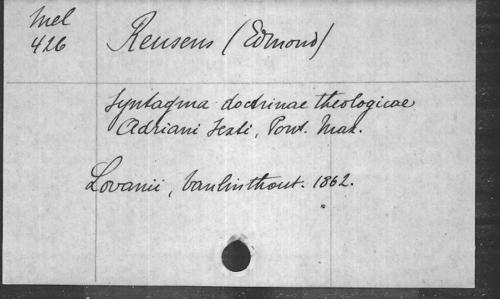 Mel
426
Reusens (Edmond)
Syntagma doctrinae theologicae
Adriani Sexti, Pont. Max.
Lovanii, Vanlinthout. 1862.